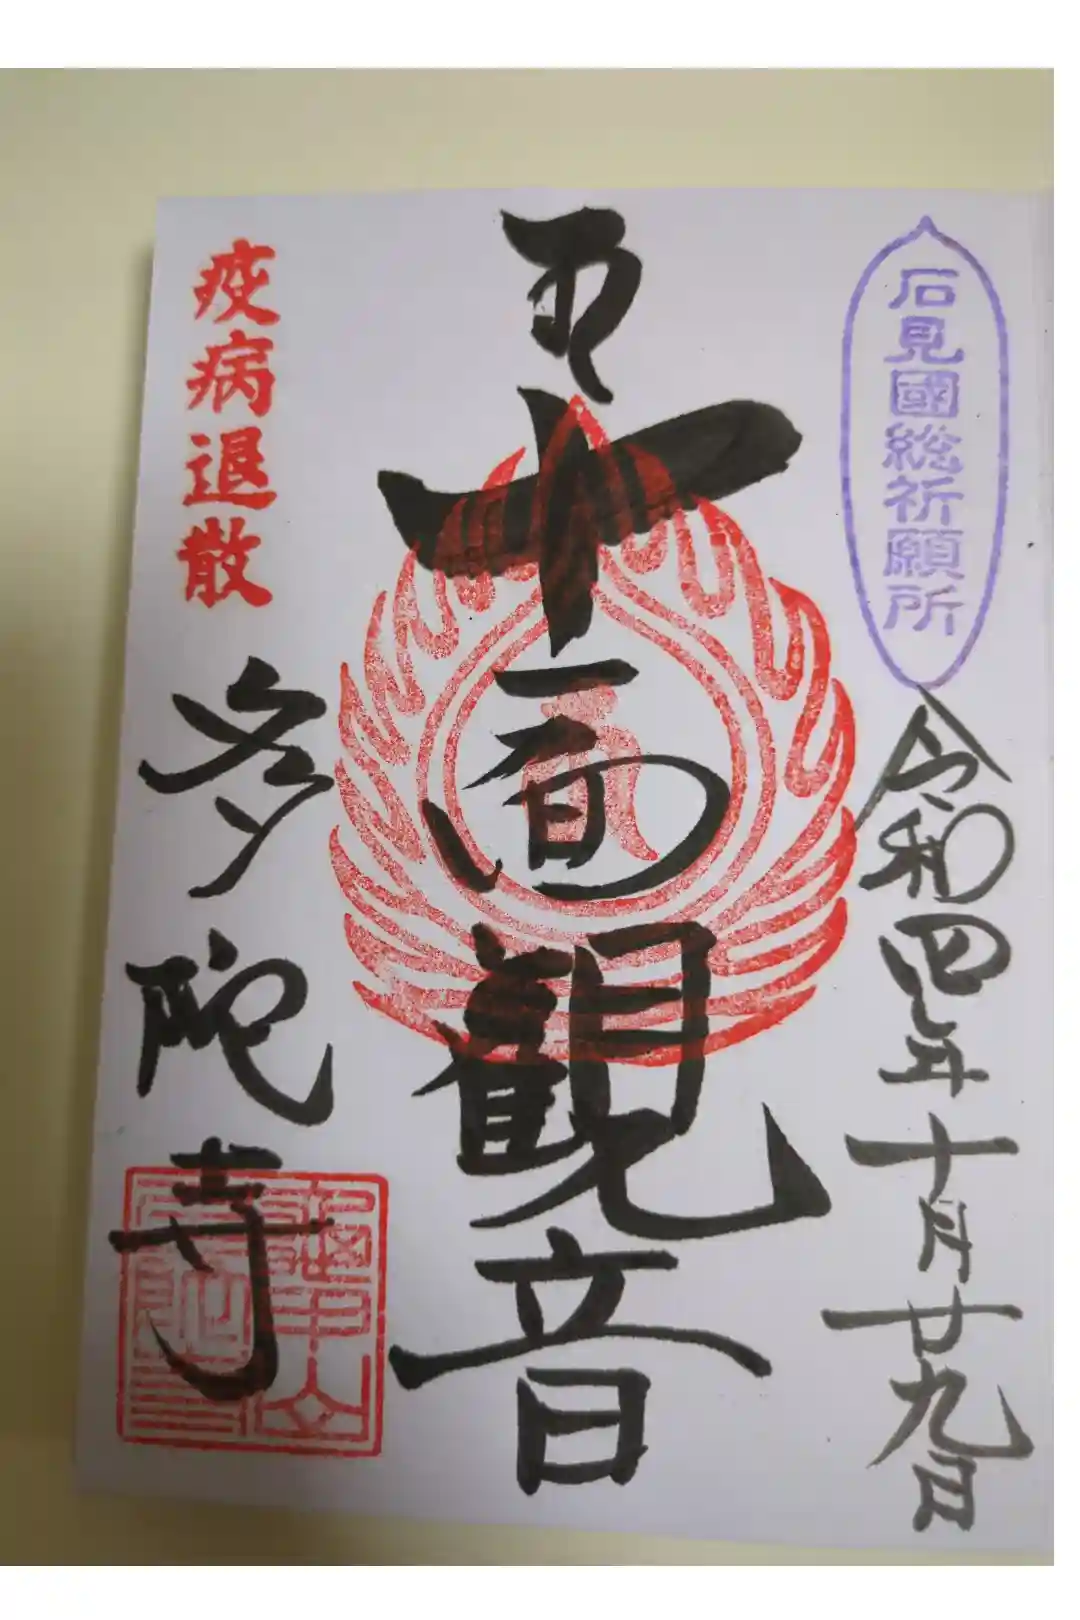 石見國総祈願所
令和四年十月廿九日
十一面観音
疫病退散
多陀寺